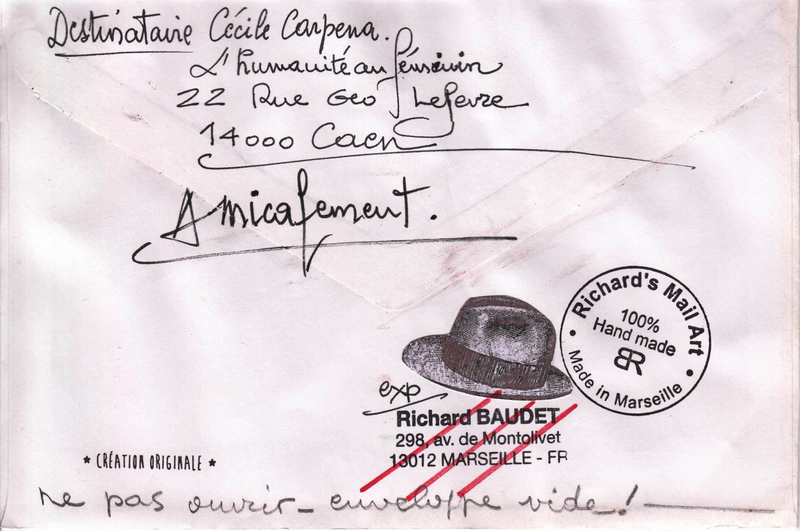 Destinataire Cécile Carpena.
L'humanité au fénsivin
22 Rue Geo Lefevre
14000 Caen
Amicalement.
Richard's Mail Art
100%
Hand made
BR
Made in Marseille
exp
Richard BAUDET
298, av. de Montolivet
13012 MARSEILLE - FR
* CRÉATION ORIGINALE *
ne pas ouvrir - enveloppe vide !